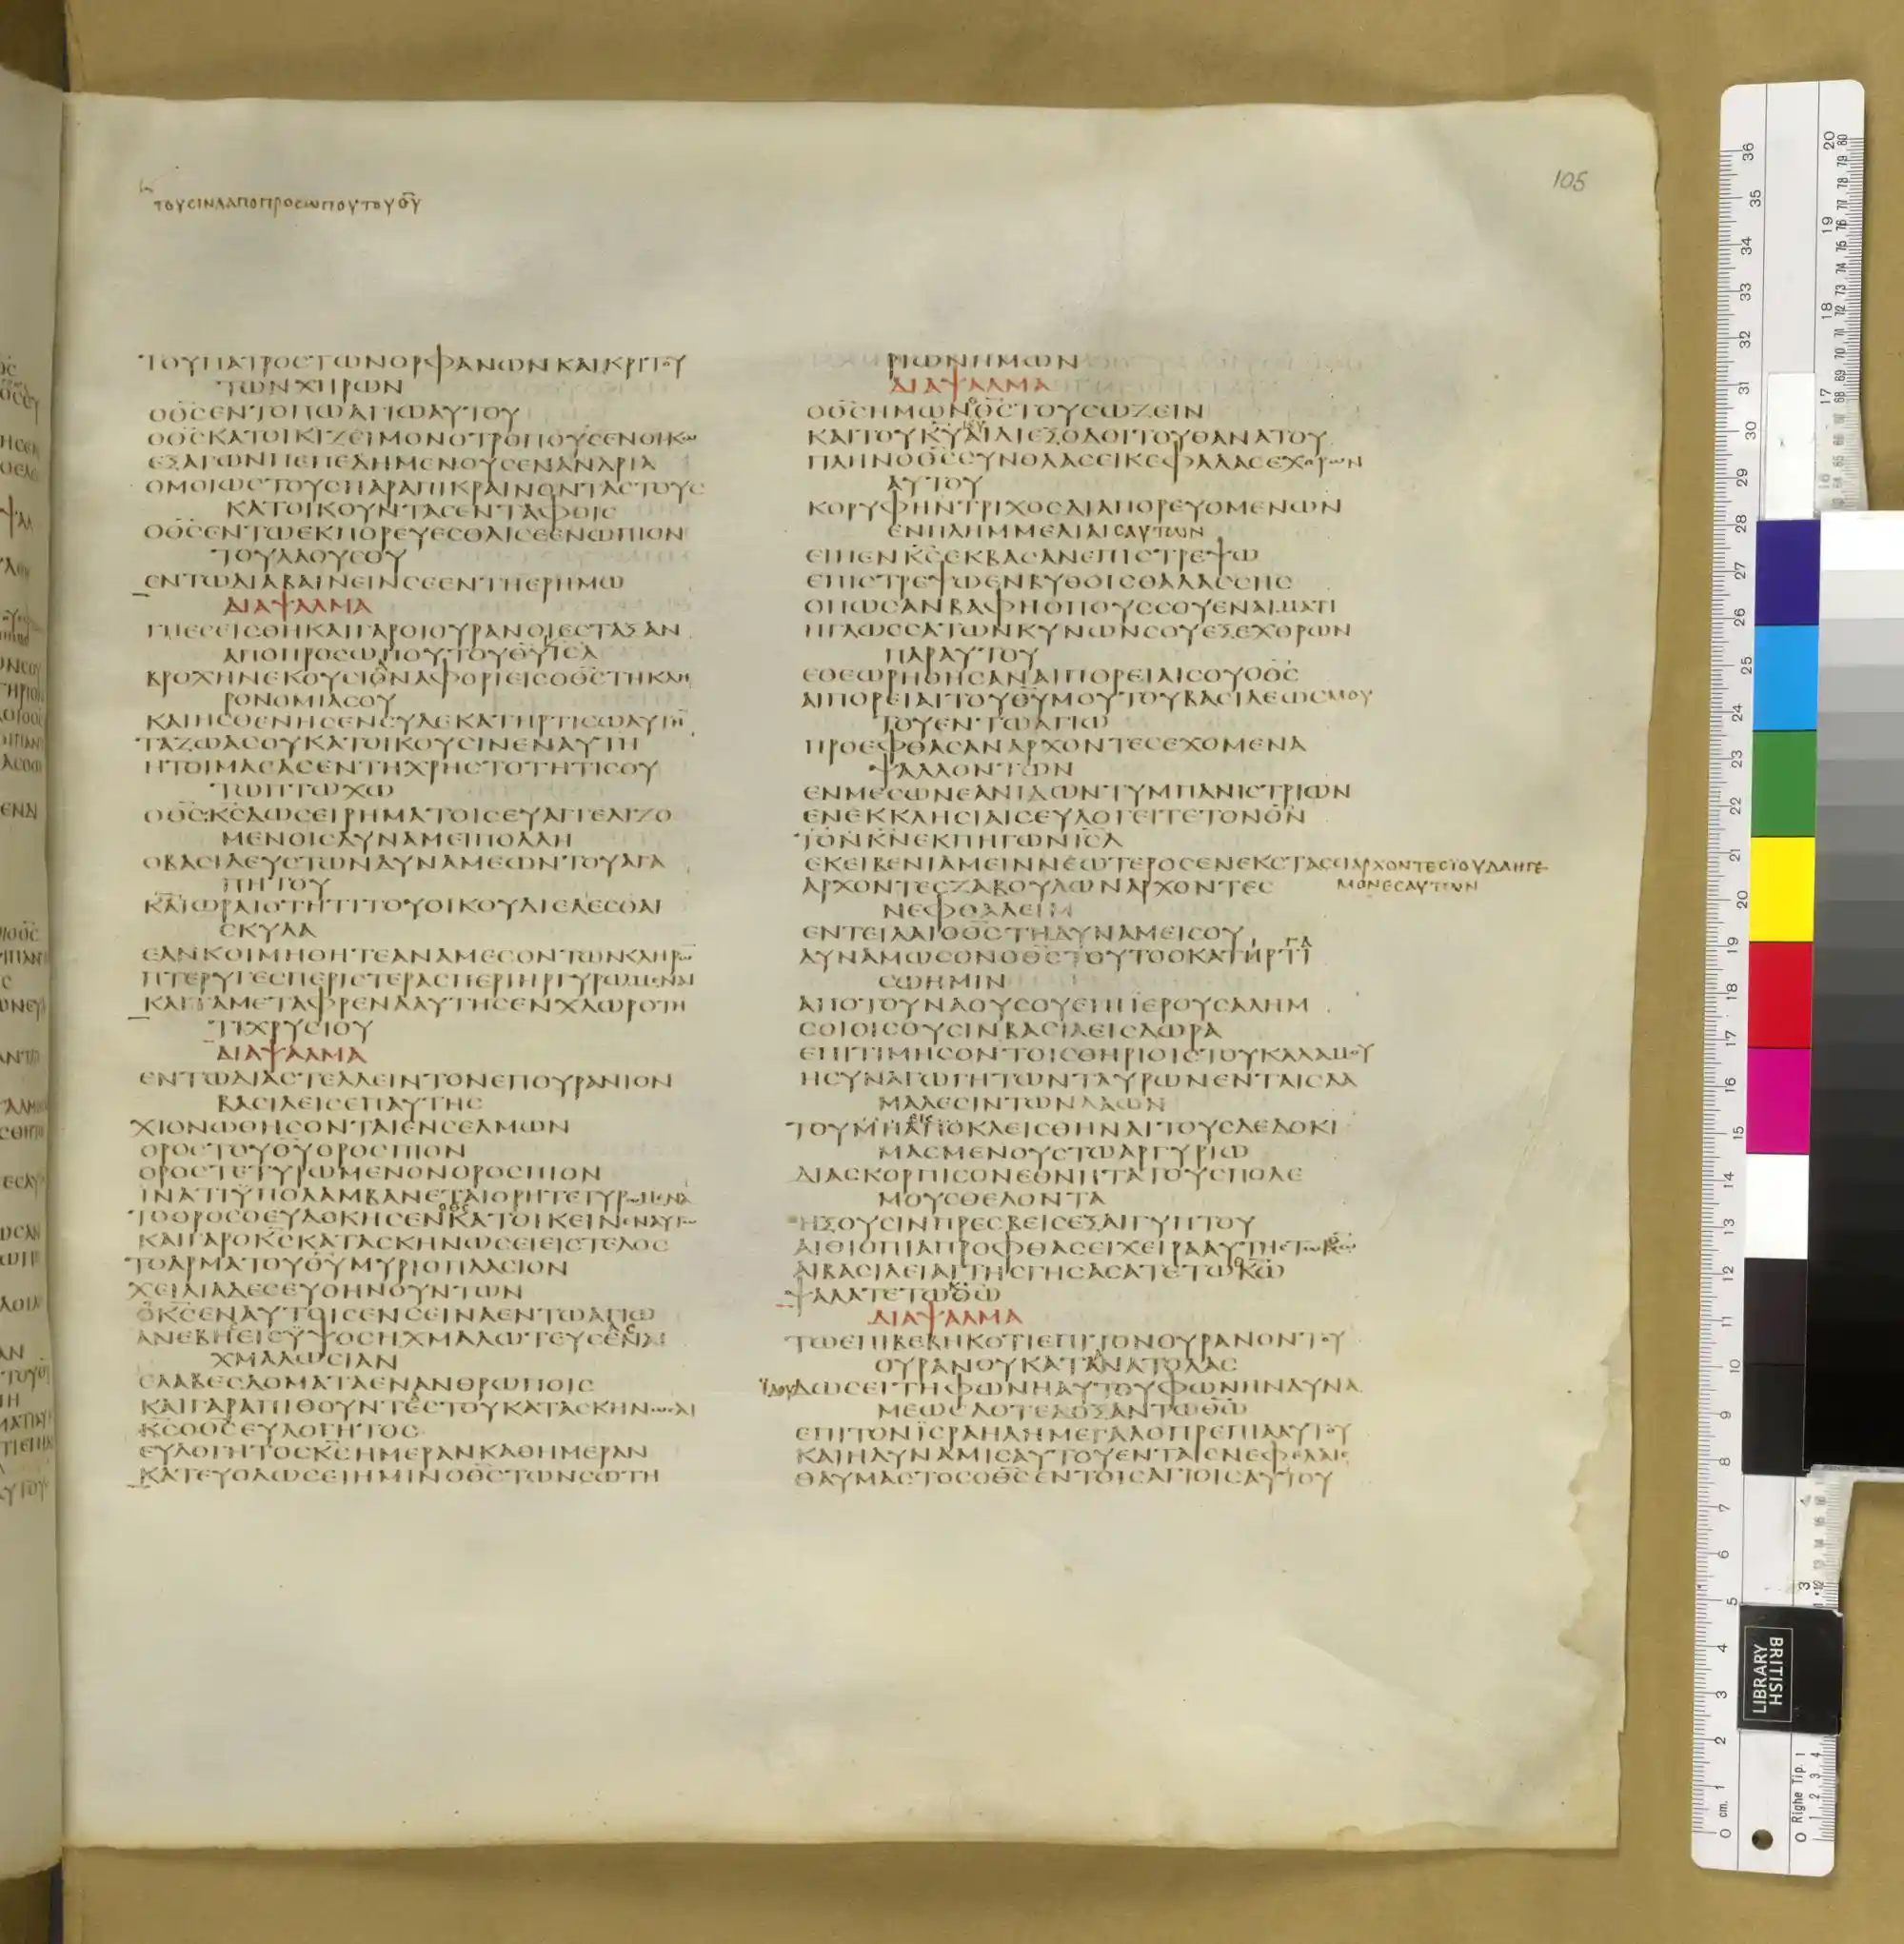 105
ΤΟΥϹΙΝΑΑΠΟΠΡΟϹΩΠΟΥΤΟΥΘΥ
ΤΟΥΠΑΤΡΟϹΤΩΝΟΡΦΑΝΩΝΚΑΙΚΡΙΤΟΥ
ΤΩΝΧΗΡΩΝ
ΟΘϹΕΝΤΟΠΩΑΓΙΩΑΥΤΟΥ
ΟΘϹΚΑΤΟΙΚΙΖΕΙΜΟΝΟΤΡΟΠΟΥϹΕΝΟΙΚΩ
ΕΞΑΓΩΝΠΕΠΕΔΗΜΕΝΟΥϹΕΝΑΝΔΡΙΑ
ΟΜΟΙΩϹΤΟΥϹΠΑΡΑΠΙΚΡΑΙΝΟΝΤΑϹΤΟΥϹ
ΚΑΤΟΙΚΟΥΝΤΑϹΕΝΤΑΦΟΙϹ
ΟΘϹΕΝΤΩΕΚΠΟΡΕΥΕϹΘΑΙϹΕΕΝΩΠΙΟΝ
ΤΟΥΛΑΟΥϹΟΥ
ΕΝΤΩΔΙΑΒΑΙΝΕΙΝϹΕΕΝΤΗΕΡΗΜΩ
ΔΙΑΨΑΛΜΑ
ΓΗΕϹΕΙϹΘΗΚΑΙΓΑΡΟΙΟΥΡΑΝΟΙΕϹΤΑΞΑΝ
ΑΠΟΠΡΟϹΩΠΟΥΤΟΥΘΥΙϹΛ
ΒΡΟΧΗΝΕΚΟΥϹΙΟΝΑΦΟΡΙΕΙϹΟΘϹΤΗΚΛΗ
ΡΟΝΟΜΙΑϹΟΥ
ΚΑΙΗϹΘΕΝΗϹΕΝϹΥΔΕΚΑΤΗΡΤΙϹΩΑΥΤΗ
ΤΑΖΩΑϹΟΥΚΑΤΟΙΚΟΥϹΙΝΕΝΑΥΤΗ
ΗΤΟΙΜΑϹΑϹΕΝΤΗΧΡΗϹΤΟΤΗΤΙϹΟΥ
ΤΩΠΤΩΧΩ
ΟΘϹΚϹΔΩϹΕΙΡΗΜΑΤΟΙϹΕΥΑΓΓΕΛΙΖΟ
ΜΕΝΟΙϹΔΥΝΑΜΕΙΠΟΛΛΗ
ΟΒΑϹΙΛΕΥϹΤΩΝΔΥΝΑΜΕΩΝΤΟΥΑΓΑ
ΠΗΤΟΥ
ΚΑΙΩΡΑΙΟΤΗΤΙΤΟΥΟΙΚΟΥΔΙΕΛΕϹΘΑΙ
ϹΚΥΛΑ
ΕΑΝΚΟΙΜΗΘΗΤΕΑΝΑΜΕϹΟΝΤΩΝΚΛΗΡΩ
ΠΤΕΡΥΓΕϹΠΕΡΙϹΤΕΡΑϹΠΕΡΙΗΡΓΥΡΩΜΕΝΑΙ
ΚΑΙΤΑΜΕΤΑΦΡΕΝΑΑΥΤΗϹΕΝΧΛΩΡΟΤΗ
ΤΙΧΡΥϹΙΟΥ
ΔΙΑΨΑΛΜΑ
ΕΝΤΩΔΙΑϹΤΕΛΛΕΙΝΤΟΝΕΠΟΥΡΑΝΙΟΝ
ΒΑϹΙΛΕΙϹΕΠΑΥΤΗϹ
ΧΙΟΝΩΘΗϹΟΝΤΑΙΕΝϹΕΛΜΩΝ
ΟΡΟϹΤΟΥΘΥΟΡΟϹΠΙΟΝ
ΟΡΟϹΤΕΤΥΡΩΜΕΝΟΝΟΡΟϹΠΙΟΝ
ΙΝΑΤΙΫΠΟΛΑΜΒΑΝΕΤΑΙΟΡΗΤΕΤΥΡΩΜΕΝΑ
ΤΟΟΡΟϹΟΕΥΔΟΚΗϹΕΝΚΑΤΟΙΚΕΙΝΕΝΑΥΤΩ
ΚΑΙΓΑΡΟΚϹΚΑΤΑϹΚΗΝΩϹΕΙΕΙϹΤΕΛΟϹ
ΤΟΑΡΜΑΤΟΥΘΥΜΥΡΙΟΠΛΑϹΙΟΝ
ΧΕΙΛΙΑΔΕϹΕΥΘΗΝΟΥΝΤΩΝ
ΟΚϹΕΝΑΥΤΟΙϹΕΝϹΕΙΝΑΕΝΤΩΑΓΙΩ
ΑΝΕΒΗΕΙϹΥΨΟϹΗΧΜΑΛΩΤΕΥϹΕΝΑΙ
ΧΜΑΛΩϹΙΑΝ
ΕΛΑΒΕϹΔΟΜΑΤΑΕΝΑΝΘΡΩΠΟΙϹ
ΚΑΙΓΑΡΑΠΙΘΟΥΝΤΕϹΤΟΥΚΑΤΑϹΚΗΝΩϹΑΙ
ΚϹΟΘϹΕΥΛΟΓΗΤΟϹ
ΕΥΛΟΓΗΤΟϹΚϹΗΜΕΡΑΝΚΑΘΗΜΕΡΑΝ
ΚΑΤΕΥΟΔΩϹΕΙΗΜΙΝΟΘϹΤΩΝϹΩΤΗ
ΡΙΩΝΗΜΩΝ
ΔΙΑΨΑΛΜΑ
ΟΘϹΗΜΩΝΟΘϹΤΟΥϹΩΖΕΙΝ
ΚΑΙΤΟΥΚΥΑΙΔΙΕΞΟΔΟΙΤΟΥΘΑΝΑΤΟΥ
ΠΛΗΝΟΘϹϹΥΝΘΛΑϹΕΙΚΕΦΑΛΑϹΕΧΘΡΩΝ
ΑΥΤΟΥ
ΚΟΡΥΦΗΝΤΡΙΧΟϹΔΙΑΠΟΡΕΥΟΜΕΝΩΝ
ΕΝΠΛΗΜΜΕΛΙΑΙϹΑΥΤΩΝ
ΕΙΠΕΝΚϹΕΚΒΑϹΑΝΕΠΙϹΤΡΕΨΩ
ΕΠΙϹΤΡΕΨΩΕΝΒΥΘΟΙϹΘΑΛΑϹϹΗϹ
ΟΠΩϹΑΝΒΑΦΗΟΠΟΥϹϹΟΥΕΝΑΙΜΑΤΙ
ΗΓΛΩϹϹΑΤΩΝΚΥΝΩΝϹΟΥΕΞΕΧΘΡΩΝ
ΠΑΡΑΥΤΟΥ
ΕΘΕΩΡΗΘΗϹΑΝΑΙΠΟΡΕΙΑΙϹΟΥΟΘϹ
ΑΙΠΟΡΕΙΑΙΤΟΥΘΥΜΟΥΤΟΥΒΑϹΙΛΕΩϹΜΟΥ
ΤΟΥΕΝΤΩΑΓΙΩ
ΠΡΟΕΦΘΑϹΑΝΑΡΧΟΝΤΕϹΕΧΟΜΕΝΑ
ΨΑΛΛΟΝΤΩΝ
ΕΝΜΕϹΩΝΕΑΝΙΔΩΝΤΥΜΠΑΝΙϹΤΡΙΩΝ
ΕΝΕΚΚΛΗϹΙΑΙϹΕΥΛΟΓΕΙΤΕΤΟΝΘΝ
ΤΟΝΚΝΕΚΠΗΓΩΝΙϹΛ
ΕΚΕΙΒΕΝΙΑΜΕΙΝΝΕΩΤΕΡΟϹΕΝΕΚϹΤΑϹΕΙ
ΑΡΧΟΝΤΕϹΪΟΥΔΑΗΓΕ
ΜΟΝΕϹΑΥΤΩΝ
ΑΡΧΟΝΤΕϹΖΑΒΟΥΛΩΝΑΡΧΟΝΤΕϹ
ΝΕΦΘΑΛΕΙΜ
ΕΝΤΕΙΛΑΙΟΘϹΤΗΔΥΝΑΜΕΙϹΟΥ
ΔΥΝΑΜΩϹΟΝΟΘϹΤΟΥΤΟΟΚΑΤΗΡΤΙ
ϹΩΗΜΙΝ
ΑΠΟΤΟΥΝΑΟΥϹΟΥΕΠΙΙΕΡΟΥϹΑΛΗΜ
ϹΟΙΟΙϹΟΥϹΙΝΒΑϹΙΛΕΙϹΔΩΡΑ
ΕΠΙΤΙΜΗϹΟΝΤΟΙϹΘΗΡΙΟΙϹΤΟΥΚΑΛΑΜΟΥ
ΗϹΥΝΑΓΩΓΗΤΩΝΤΑΥΡΩΝΕΝΤΑΙϹΔΑ
ΜΑΛΕϹΙΝΤΩΝΛΑΩΝ
ΤΟΥΜΗΑΠΟΚΛΕΙϹΘΗΝΑΙΤΟΥϹΔΕΔΟΚΙ
ΜΑϹΜΕΝΟΥϹΤΩΑΡΓΥΡΙΩ
ΔΙΑϹΚΟΡΠΙϹΟΝΕΘΝΗΤΑΤΟΥϹΠΟΛΕ
ΜΟΥϹΘΕΛΟΝΤΑ
ΗΞΟΥϹΙΝΠΡΕϹΒΕΙϹΕΞΑΙΓΥΠΤΟΥ
ΑΙΘΙΟΠΙΑΠΡΟΦΘΑϹΕΙΧΕΙΡΑΑΥΤΗϹΤΩΘΩ
ΑΙΒΑϹΙΛΕΙΑΙΤΗϹΓΗϹΑϹΑΤΕΤΩΚΩ
ΨΑΛΑΤΕΤΩΘΩ
ΔΙΑΨΑΛΜΑ
ΤΩΕΠΙΒΕΒΗΚΟΤΙΕΠΙΤΟΝΟΥΡΑΝΟΝΤΟΥ
ΟΥΡΑΝΟΥΚΑΤΑΝΑΤΟΛΑϹ
ΪΔΟΥΔΩϹΕΙΤΗΦΩΝΗΑΥΤΟΥΦΩΝΗΝΔΥΝΑ
ΜΕΩϹΔΟΤΕΔΟΞΑΝΤΩΘΩ
ΕΠΙΤΟΝΙϹΡΑΗΛΗΜΕΓΑΛΟΠΡΕΠΙΑΑΥΤΟΥ
ΚΑΙΗΔΥΝΑΜΙϹΑΥΤΟΥΕΝΤΑΙϹΝΕΦΕΛΑΙϹ
ΘΑΥΜΑϹΤΟϹΟΘϹΕΝΤΟΙϹΑΓΙΟΙϹΑΥΤΟΥ